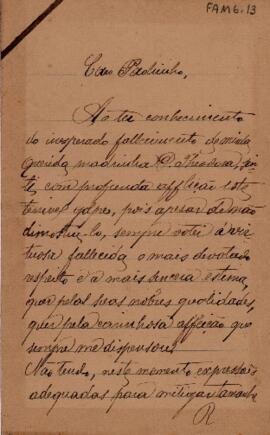 FAM6.13
Caro Padrinho,
Ao ter conhecimento
do inesperado fallecimento de minha
querida madrinha D. Theodora, sen-
ti, com profunda afflição este
terrivel golpe, pois apesar de não
demostra-lo, sempre votei á vir-
tuosa fallecida o mais devotado
respeito e a mais sincera estima,
quer pelas suas nobres qualidades,
quer pela carinhosa affeição que
sempre me dispensou.
Não tendo, neste momento expressões
adequadas para mitigar tamanha